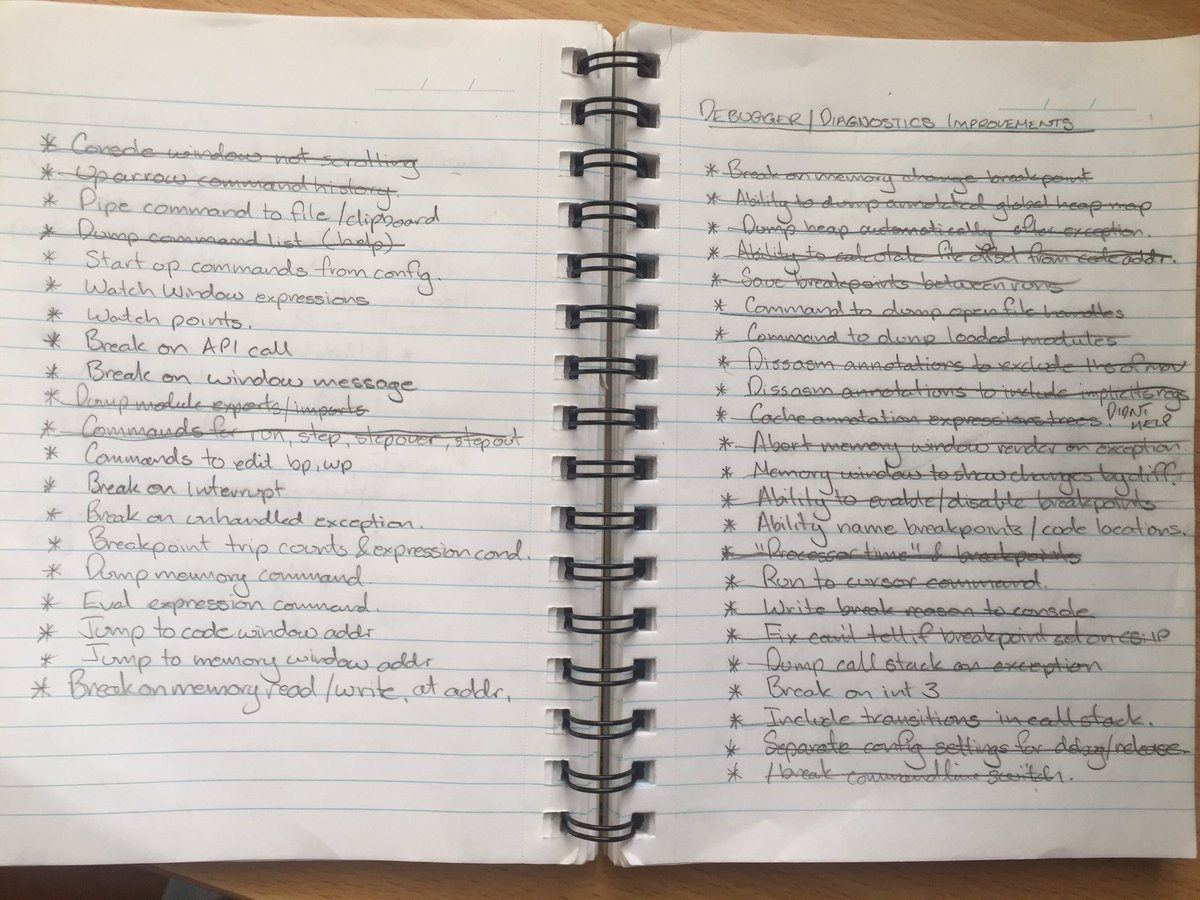 * Console window not scrolling
* Up arrow command history.
* Pipe command to file/clipboard
* Dump command list (help)
* Start up commands from config.
* Watch Window expressions
* Watch points.
* Break on API call
* Break on window message
* Dump module exports/imports
* Commands for run, step, stepover, stepout
* Commands to edit bp, wp
* Break on interrupt
* Break on unhandled exception.
* Breakpoint trip counts & expression cond.
* Dump memory command
* Eval expression command.
* Jump to code window addr
* Jump to memory window addr
* Break on memory read/write, at addr,
DEBUGGER/DIAGNOSTICS IMPROVEMENTS
* Break on memory change breakpoint
* Ability to dump annotated global heap map
* Dump heap automatically after exception.
* Ability to calculate file offset from code addr.
* Save breakpoints between runs
* Command to dump open file handles
* Command to dump loaded modules
* Dissasm annotations to exclude lhs of mov
* Dissasm annotations to include implicit regs
* Cache annotation expressions trees! DIDN'T HELP
* Abort memory window render on exception
* Memory window to show changes by diff.
* Ability to enable/disable breakpoints
* Ability name breakpoints/code locations.
* "Processor time" & breakpoints
* Run to cursor command.
* Write break reason to console
* Fix can't tell if breakpoint set on cs:IP
* Dump call stack on exception
* Break on int 3
* Include transitions in call stack.
* Separate config settings for debug/release.
* /break commandline switch.